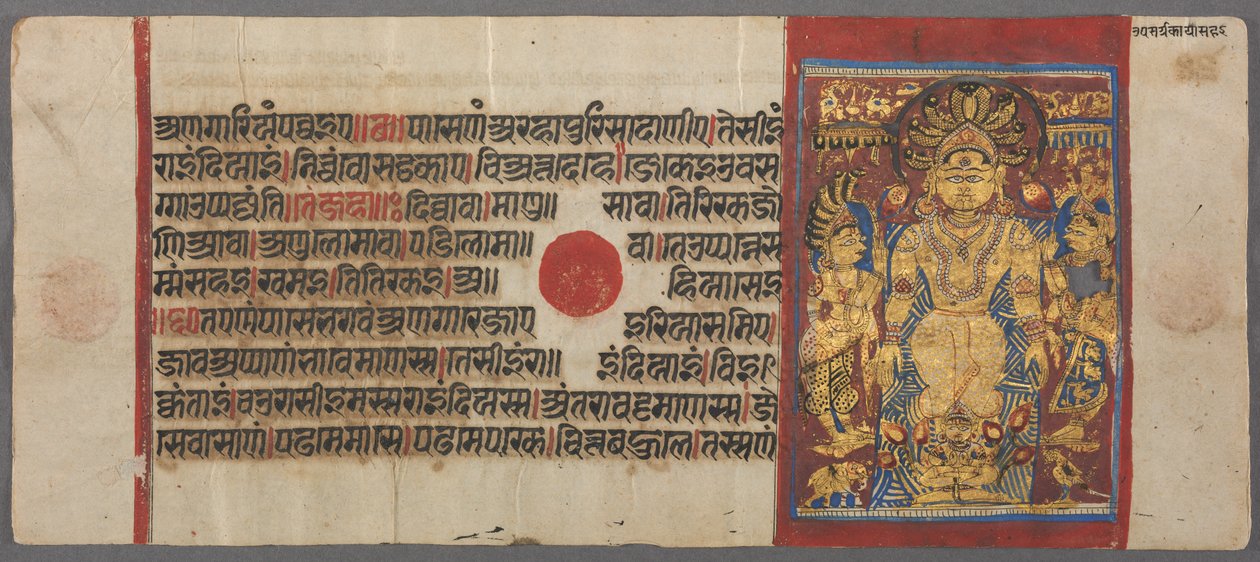 अणगारिअं पव्वइए॥छ॥पासेणं अरहा पुरिसादाणीए।तेसीइं
राइंदिआइं।निच्चं वोसट्ठकाए।चिअत्तदेहे।जे केइ उवस
ग्गा उप्पज्जंति॥तं जहा॥दिव्वा वा।माणु॥ सा वा।तिरिक्खजो
णिआ वा।अणुलोमा वा।पडिलोमा॥ वा।ते उप्पन्ने स
म्मं सहइ।खमइ।तितिक्खइ।अ॥ हिआसेइ
॥छ॥तए णं पासे भगवं अणगारे जाए इरिआसमिए।
जाव अप्पाणं भावेमाणस्स।तेसीइं रा॥ इंदिआइं।विइ
क्कंताइं।चउरासीइमस्स राइंदिअस्स।अंतरा वट्टमाणस्स।जे
से वासाणं।पढमे मासे।पढमे पक्खे।चित्तबहुले।तस्स णं